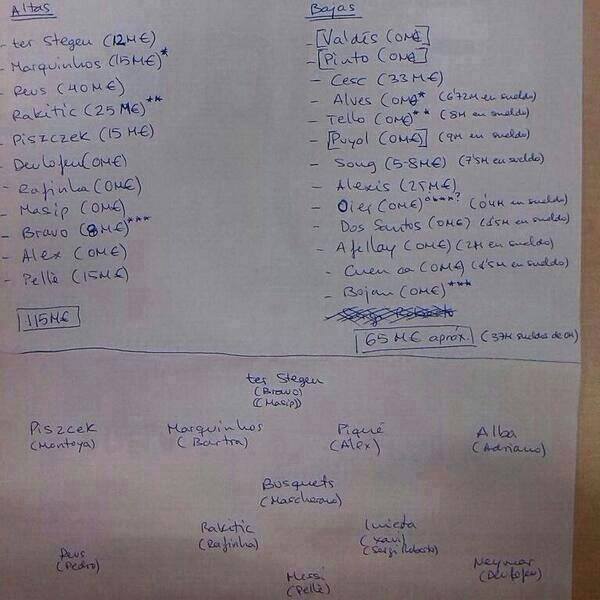 Altas
- ter Stegen (12M€)
- Marquinhos (15M€)*
- Reus (40M€)
- Rakitic (25M€)**
- Piszczek (15M€)
- Deulofeu (0M€)
- Rafinha (0M€)
- Masip (0M€)
- Bravo (8M€)***
- Alex (0M€)
- Pellè (15M€)
115M€
Bajas
- [Valdés (0M€)]
- [Pinto (0M€)]
- Cesc (33M€)
- Alves (0M€)* (6'72M en sueldo)
- Tello (0M€)** (8M en sueldo)
- [Puyol (0M€)] (9M en sueldo)
- Song (5-8M€) (7'5M en sueldo)
- Alexis (25M€)
- Oier (0M€) (0'4M en sueldo)
- Dos Santos (0M€) (1'5M en sueldo)
- Afellay (0M€) (2M en sueldo)
- Cuenca (0M€) (1'5M en sueldo)
- Bojan (0M€)***
65M€ apróx. (37M sueldos de 0M)
ter Stegen
(Bravo)
((Masip))
Piszcek Marquinhos Piqué Alba
(Montoya) (Bartra) (Alex) (Adriano)
Busquets
(Mascherano)
Rakitic Iniesta
(Rafinha) (Xavi)
(Sergi Roberto)
Reus Neymar
(Pedro) (Deulofeu)
Messi
(Pellè)